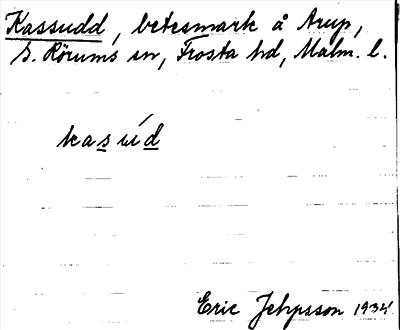 Kassudd, betesmark å Arup,
S. Rörums sn, Frosta hd, Malm. l.
kasúd
Eric Jepsson 1934